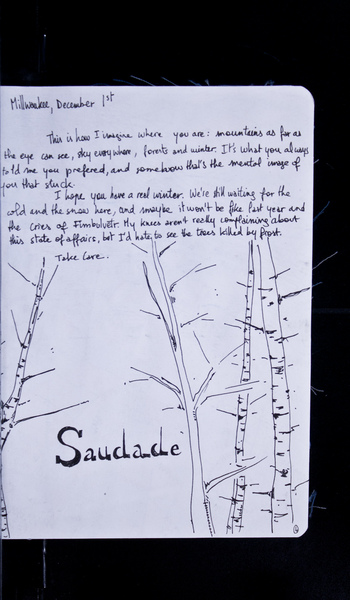 Millwaukee, December 1st
This is how I imagine where you are: mountains as far as
the eye can see, sky everywhere, forests and winter. It's what you always
told me you prefered, and somehow that's the mental image of
you that stuck.
I hope you have a real winter. We're still waiting for the
cold and the snow here, and maybe it won't be like last year and
the cries of Fimbulvetr. My knees aren't really complaining about
this state of affairs, but I'd hate to see the trees killed by frost.
Take Care.
Saudade